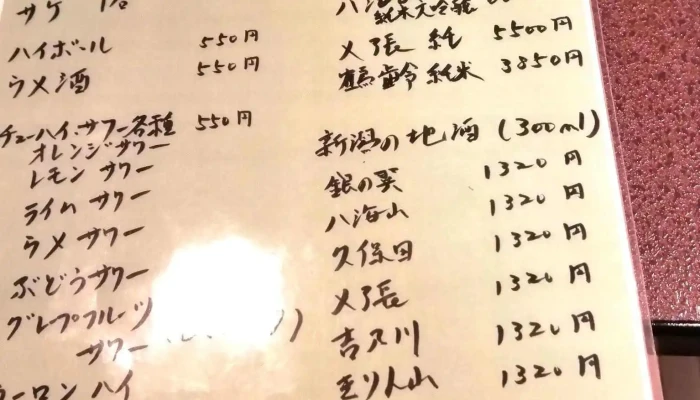 サケ
ハイボール 550円
ウメ酒 550円
チューハイ・サワー各種 550円
オレンジサワー
レモン サワー
ライム サワー
ウメ サワー
ぶどうサワー
グレープフルーツ
サワー
ウーロン ハイ
純米大吟醸
〆張 純 5500円
鶴齢 純米 3850円
新潟の地酒 (300ml)
銀の翼 1320円
八海山 1320円
久保田 1320円
〆張 1320円
吉乃川 1320円
きりん山 1320円